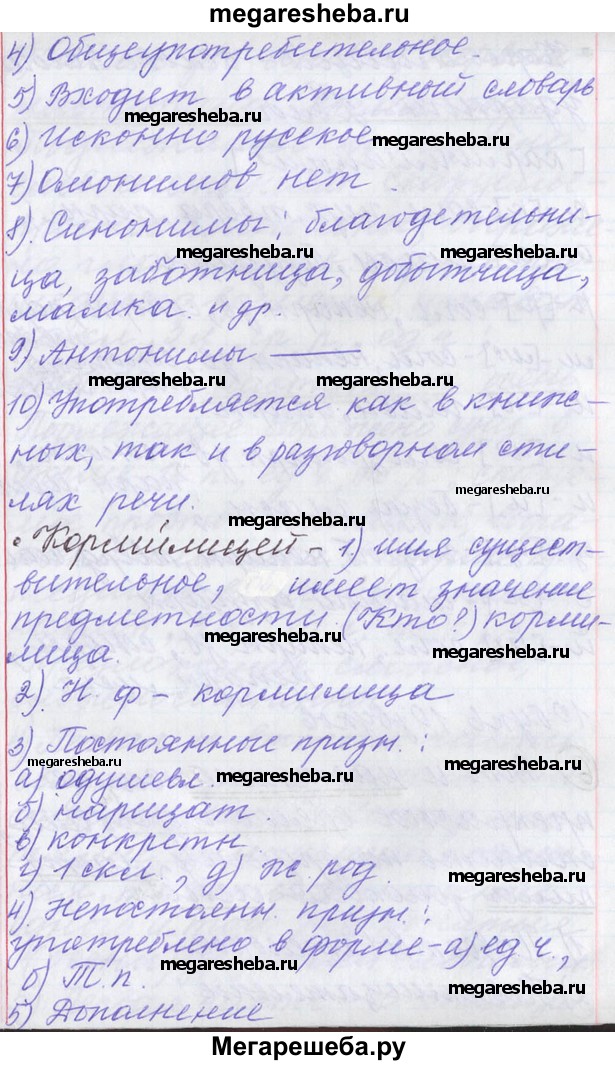 megaresheba.ru
4) Общеупотребительное.
5) Входит в активный словарь
megaresheba.ru megaresheba.ru
6) Исконно русское
megaresheba.ru
7) Омонимов нет.
8). Синонимы: благодетельни-
megaresheba.ru megaresheba.ru
ца, заботница, добытчица,
мамка. и др.
9) Антонимы ———
megaresheba.ru megaresheba.ru
10) Употребляется как в книж-
ных, так и в разговорном сти-
megaresheba.ru
лях речи.
• Корми́лицей – 1) имя сущест-
вительное, имеет значение
предметности. (Кто?) корми-
megaresheba.ru megaresheba.ru
лица.
2). Н. ф – кормилица
3) Постоянные призн.:
megaresheba.ru megaresheba.ru
а) одушевл.
б) нарицат
в) конкретн
г) 1 скл., д) ж род
megaresheba.ru
4). Непостоянн. призн.:
употреблено в форме – а) ед ч.,
megaresheba.ru
б) Т. п.
megaresheba.ru
5) Дополнение
Мегарешеба.ру